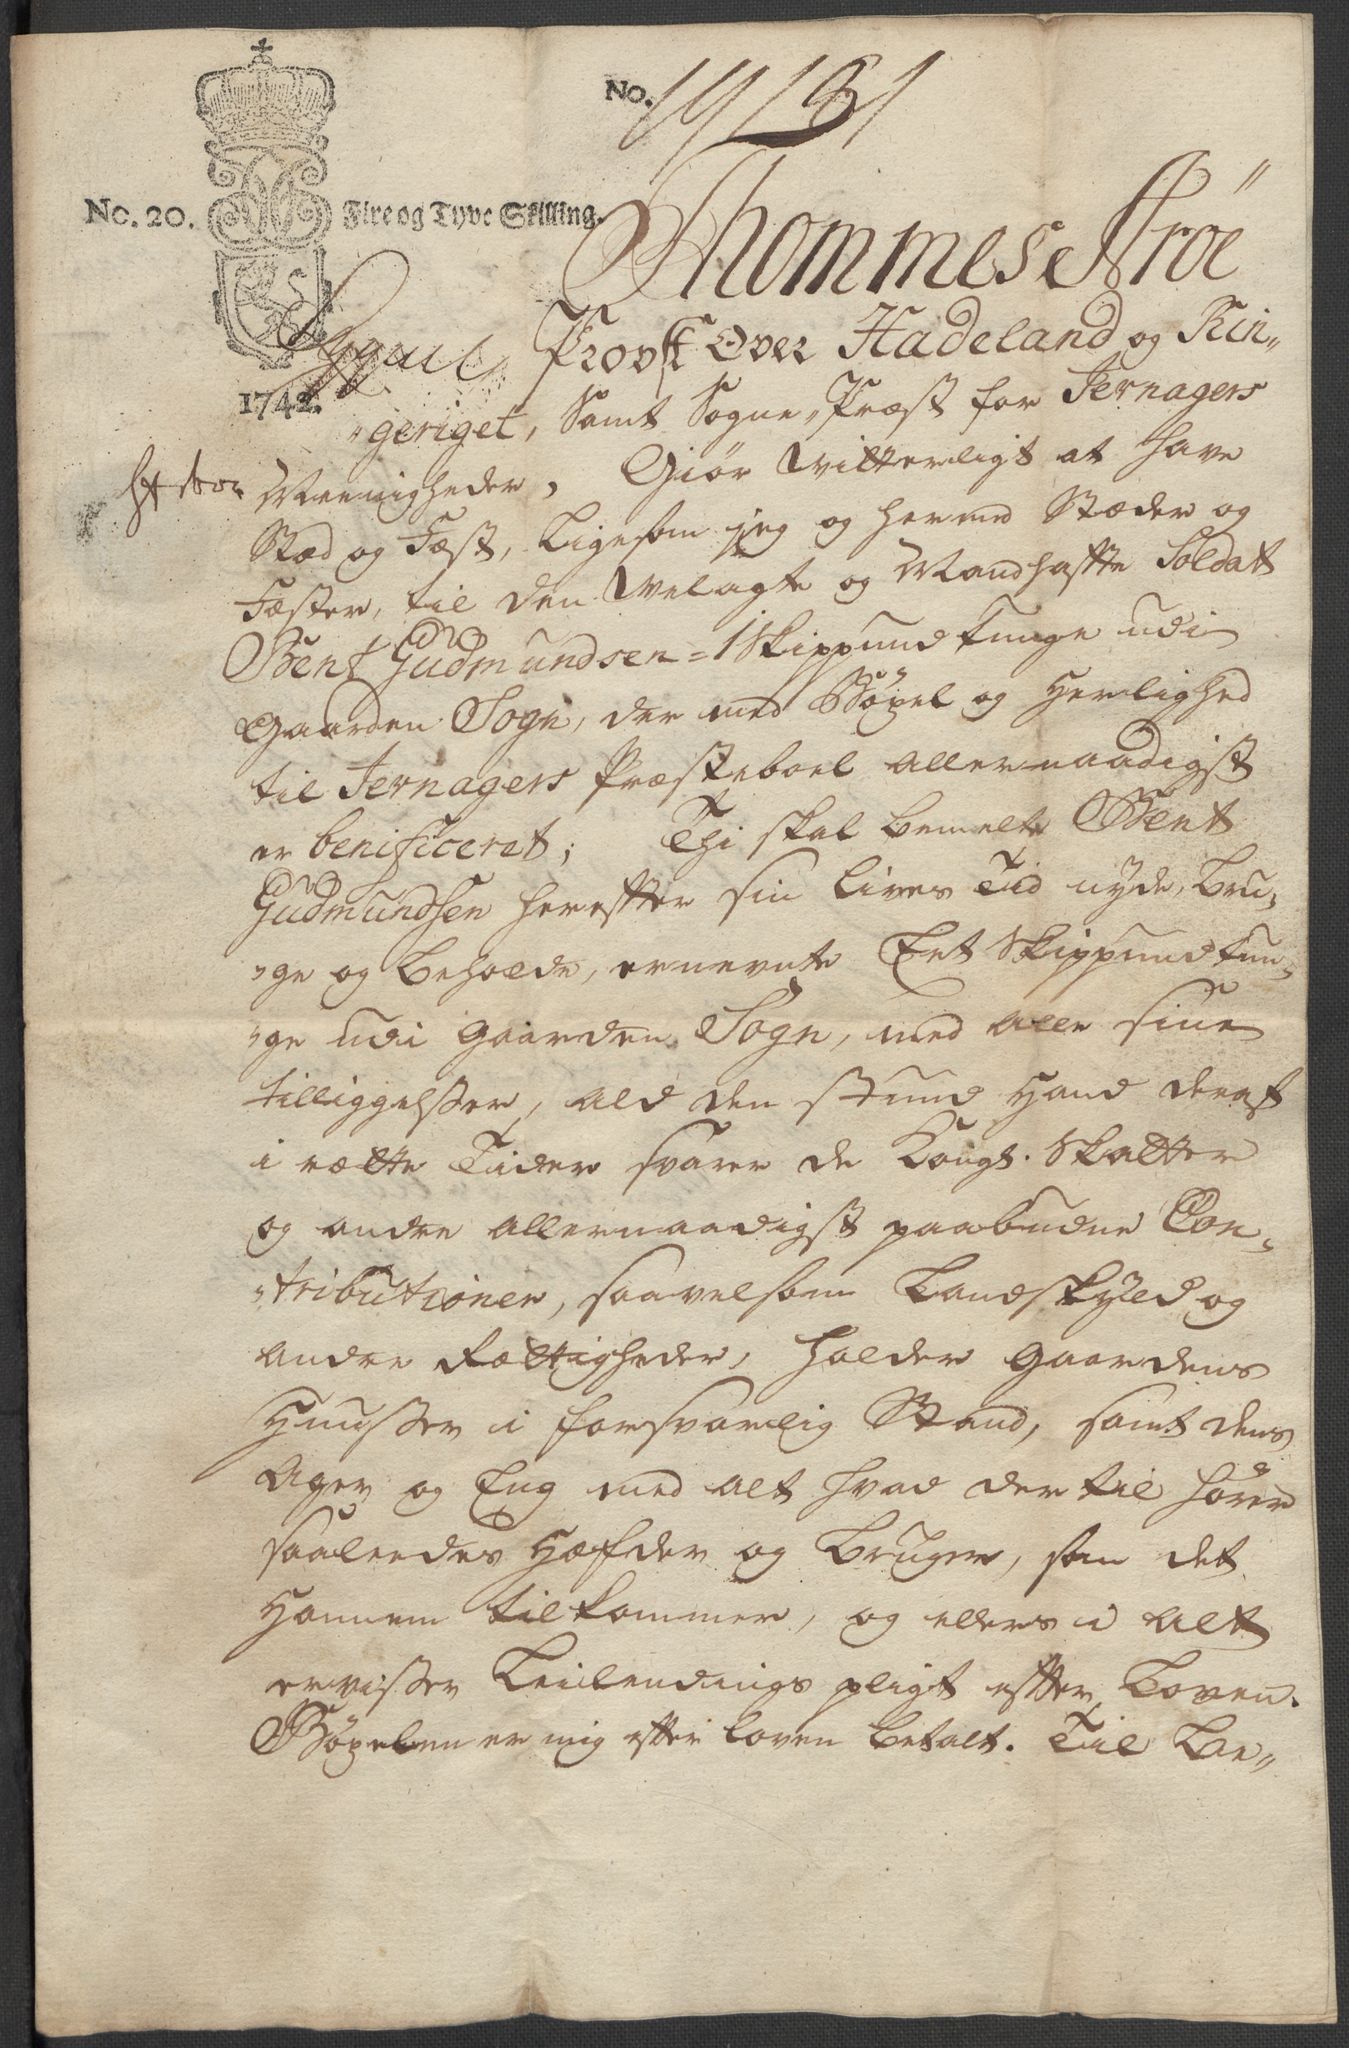 No. 1915 1
No. 20. Fire og Tyve Skilling.
1742.
Thommes Aroë
Provst Over Hadeland og Rin„
„geriget, Samt Sogne„Præst for Jernagers
Meenigheder, Giør Witterligt at have
Stæd og Fæst, Ligesom jeg og hermed Stæder og
Fæster, til den Welagte og Mandhaffte Soldat
Bent Gudmundsen = 1 Skippund tunge udi
Gaarden Sogn, der med Bøxel og Herlighed
til Jernagers Præsteboel allernaadigst
er benificeret; Thi skal bemelte Bent
Gudmundsen herefter sin Lives Tid nyde, bru„
„ge og beholde, ernevnte Eet Skippund tun„
„ge udi Gaarden Sogn, med alle sine
tilliggelsser, ald den stund hand deraf
i rætte Tider svarer de Kongl. Skatter
og andre allernaadigst paabudne Con„
„tributioner, saavelsom Landskyld og
andre Rættigheder, holder Gaardens
Huusser i forsvarlig Stand, samt dens
Ager og Eng med alt hvad der til hører
saaleedes Hæfder og bruger, som det
Hannem tilkommer, og ellers i alt
erviisser Leilendings pligt efter Loven.
Bøxelen er mig efter loven betalt. Til Be„